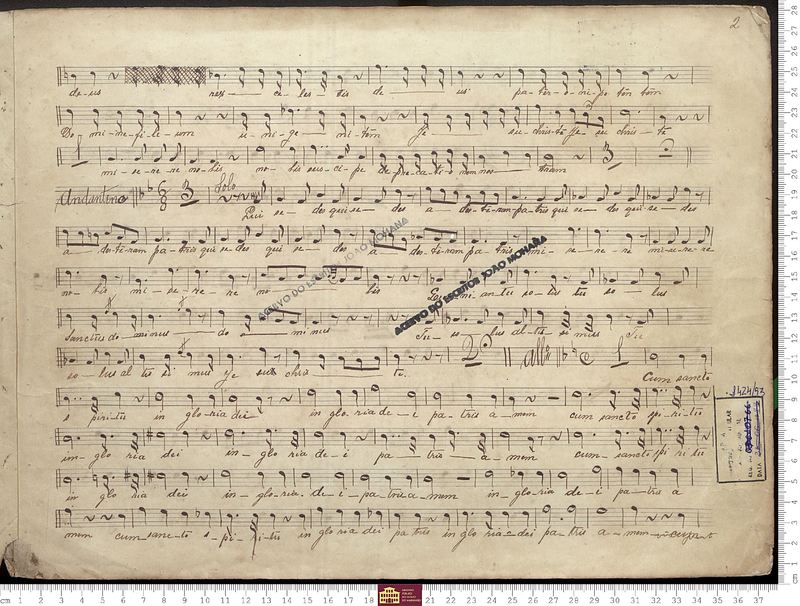 2
de-us rex- ce-les-tis de us pa-ter-o-ni-po tem tem
Do mi-ne-fi-li-um u-ni-ge mi-tem Je su-chris-te Je-su chris-te
mi-se-re-re no-bis no-bis sus-ci-pe de pre-ca-ti-o nem nos tram
Andantino 6 8 3 Solo
Qui se- des qui se- des a- dex-te-ram-pa-tris qui se- des qui se-des
a dex-te-ram pa-tris qui se-des qui se- des a dex-te-ram pa tris mi-se-re-re mi-se-re-re
no-bis mi-se-re-re no bis so-lus
Sanctus do-minus do mi nus Tu- so-lus al-tis-si mus Tu
so-lus al tis si mus Je su chris te. 2 allº C 1 Cum sancto
s piritu in glo-ria dei in glo-ria de-i pa-tris a-men cum sancto spi-ri-tu
in-glo ria dei in-glo ria de-i pa tris a-men cum-sancto spi ri tu
in glo ria dei in-glo-ria de-i-pa-tris a-men in-glo-ria de-i pa-tris a
men cum sanc-to s-pi-ri-tu in glo ria dei pa tris in glo ria-dei pa-tris a-men
ACERVO DO ESCRITOR JOÃO MOHANA
ACERVO DO ESCRITOR JOÃO MOHANA
1424/93
DATA
cm 1 2 3 4 5 6 7 8 9 10 11 12 13 14 15 16 17 18 21 22 23 24 25 26 27 28 29 30 31 32 33 34 35 36 37
cm 1 2 3 4 5 6 7 8 9 10 11 12 13 14 15 16 17 18 19 20 21 22 23 24 25 26 27 28